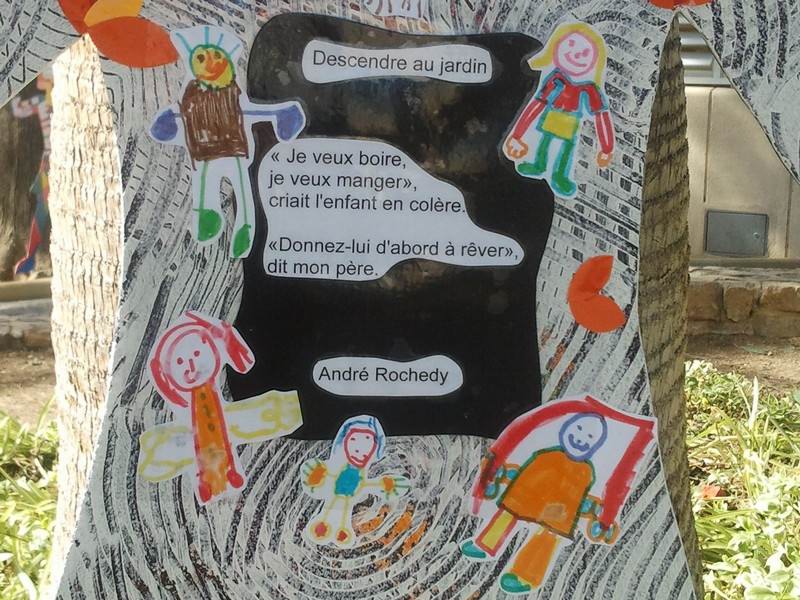 Descendre au jardin
« Je veux boire,
je veux manger»,
criait l'enfant en colère.
«Donnez-lui d'abord à rêver»,
dit mon père.
André Rochedy